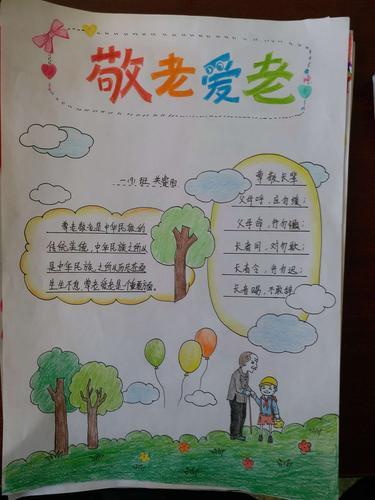 敬老爱老
尊敬长辈
父母呼,应勿缓;
父母命,行勿懒;
长者问,对勿欺;
长者令,行勿迟;
长者赐,不敢辞。
尊老敬老是中华民族的
传统美德,中华民族之所以
是中华民族,之所以历尽苍桑
生生不息,尊老爱老是个重要